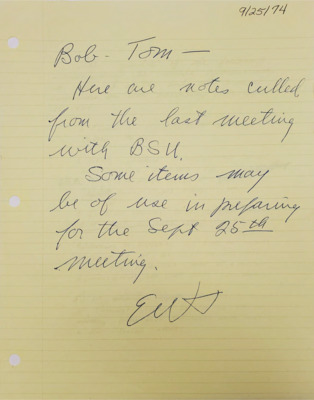 9/25/74
Bob - Tom —
Here are notes culled
from the last meeting
with BSU.
Some items may
be of use in preparing
for the Sept 25th
meeting.